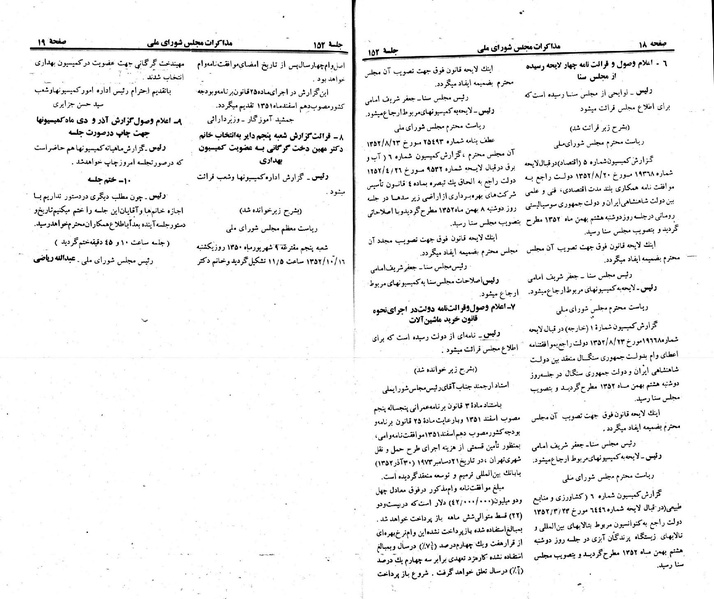 صفحه ۱۸
مذاکرات مجلس شورای ملی
جلسه ۱۵۲
۶ - اعلام وصول و قرائت نامه چهار لایحه رسیده
از مجلس سنا
رئیس - لوایحی از مجلس سنا رسیده است که
برای اطلاع مجلس قرائت میشود.
(بشرح زیر قرائت شد)
ریاست محترم مجلس شورای ملی
گزارش کمیسیون شماره ۵ (اقتصاد) در قبال لایحه
شماره ۱۹۳۶۸ مورخ ۱۳۵۲/۸/۲۰ دولت راجع به
موافقت نامه همکاری بلند مدت اقتصادی، فنی و علمی
بین دولت شاهنشاهی ایران و جمهوری سوسیالیستی
رومانی در جلسه روز دوشنبه هشتم بهمن ماه ۱۳۵۲ مطرح
گردید و بتصویب مجلس سنا رسید.
اینک لایحه قانون فوق جهت تصویب آن مجلس
محترم بضمیمه ایفاد میگردد.
رئیس مجلس سنا - جعفر شریف امامی
رئیس - لایحه به کمیسیونهای مربوط ارجاع میشود.
ریاست محترم مجلس شورای ملی
گزارش کمیسیون شماره ۱ (خارجه) در قبال لایحه
شماره ۱۹۶۶۸ مورخ ۱۳۵۲/۸/۲۳ دولت راجع بموافقتنامه
اعطای وام بدولت جمهوری سنگال منعقد بین دولت
شاهنشاهی ایران و دولت جمهوری سنگال در جلسه روز
دوشنبه هشتم بهمن ماه ۱۳۵۲ مطرح گردید و بتصویب
مجلس سنا رسید.
اینک لایحه قانون فوق جهت تصویب آن مجلس
محترم بضمیمه ایفاد میگردد.
رئیس مجلس سنا - جعفر شریف امامی
رئیس - لایحه به کمیسیونهای مربوط ارجاع میشود.
ریاست محترم مجلس شورای ملی
گزارش کمیسیون شماره ۶ (کشاورزی و منابع
طبیعی) در قبال لایحه شماره ۶۴۴۶ مورخ ۱۳۵۲/۳/۲۳
دولت راجع به کنوانسیون مربوط بتالابهای بین‌المللی و
تالابهای زیستگاه پرندگان آبزی در جلسه روز دوشنبه
هشتم بهمن ماه ۱۳۵۲ مطرح گردید و بتصویب مجلس
سنا رسید.
اینک لایحه قانون فوق جهت تصویب آن مجلس
محترم بضمیمه ایفاد میگردد.
رئیس مجلس سنا - جعفر شریف امامی
رئیس - لایحه به کمیسیونهای مربوط ارجاع میشود.
ریاست محترم مجلس شورای ملی
عطف بنامه شماره ۲۵۴۹۳ مورخ ۱۳۵۲/۸/۲۳
آن مجلس محترم، گزارش کمیسیون شماره ۶ (آب و
برق) در قبال لایحه شماره ۹۵۳۲ مورخ ۱۲۵۲/۴/۲۶
دولت راجع به الحاق یک تبصره بماده ۴ قانون تأسیس
شرکت‌های بهره‌برداری از اراضی زیر سدها در جلسه
روز دوشنبه ۸ بهمن ماه ۱۳۵۲ مطرح گردید و با اصلاحاتی
بتصویب مجلس سنا رسید.
اینک لایحه قانون فوق جهت تصویب مجدد آن
مجلس محترم بضمیمه ایفاد میگردد.
رئیس مجلس سنا - جعفر شریف امامی
رئیس - اصلاحات مجلس سنا به کمیسیونهای مربوط
ارجاع میشود.
۷ - اعلام وصول و قرائت نامه دولت در اجرای نحوه
قانون خرید ماشین‌آلات
رئیس - نامه‌ای از دولت رسیده است که برای
اطلاع مجلس قرائت میشود.
(بشرح زیر خوانده شد)
استاد ارجمند جناب آقای رئیس مجلس شورای ملی
باستناد مادهٔ ۳ قانون برنامه عمرانی پنجساله پنجم
مصوب اسفند ۱۳۵۱ و با رعایت مادهٔ ۲۵ قانون برنامه و
بودجه کشور مصوب دهم اسفند ۱۳۵۱ موافقت نامه وامی،
بمنظور تأمین قسمتی از هزینه اجرای طرح حمل و نقل
شهری تهران، در تاریخ ۲۱ دسامبر ۱۹۷۳ (۳۰ آذر ۱۳۵۲)
با بانک بین‌المللی ترمیم و توسعه منعقد گردیده است.
مبلغ موافقت نامه وام مذکور در فوق معادل چهل
و دو میلیون (۴۲/۰۰۰/۰۰۰) دلار است که در بیست و دو
(۲۲) قسط متوالی شش ماهه باز پرداخت خواهد شد.
بمبالغ استفاده شده بازپرداخت نشده این وام نرخ بهره‌ای
از قرار هفت و یک چهارم درصد (۷¼٪) در سال و بمبالغ
استفاده نشده کارمزد تعهدی برابر سه چهارم یک درصد
(¾٪) در سال تعلق خواهد گرفت. شروع باز پرداخت
جلسه ۱۵۲
مذاکرات مجلس شورای ملی
صفحه ۱۹
اصل وام چهار سال پس از تاریخ امضای موافقت نامه وام
خواهد بود.
این گزارش در اجرای ماده ۲۵ قانون برنامه و بودجه
کشور مصوب دهم اسفند ماه ۱۳۵۱ تقدیم میگردد.
جمشید آموزگار - وزیر دارائی
۸ - قرائت گزارش شعبه پنجم دایر به انتخاب خانم
دکتر مهین دخت گرگانی به عضویت کمیسیون
بهداری
رئیس - گزارش اداره کمیسیونها و شعب قرائت
میشود.
(بشرح زیر خوانده شد)
ریاست معظم مجلس شورای ملی
شعبه پنجم متفرقهٔ ۹ شهریور ماه ۱۳۵۰ روز یکشنبه
۱۳۵۲/۱۰/۱۶ ساعت ۱۱/۵ تشکیل گردید و خانم دکتر
مهیندخت گرگانی جهت عضویت در کمیسیون بهداری
انتخاب شدند.
با تقدیم احترام رئیس اداره امور کمیسیونها و شعب
سید حسن جزایری
۹ - اعلام وصول گزارش آذر و دی ماه کمیسیونها
جهت چاپ در صورت جلسه
رئیس - گزارش ماهیانه کمیسیونها هم حاضر است
که در صورتجلسه امروز چاپ خواهد شد.
۱۰ - ختم جلسه
رئیس - چون مطلب دیگری در دستور نداریم با
اجازه خانم‌ها و آقایان این جلسه را ختم میکنیم تاریخ و
دستور جلسه آینده بعداً باطلاع همکاران محترم خواهد رسید.
(جلسه ساعت ۱۰ و ۴۵ دقیقه ختم گردید)
رئیس مجلس شورای ملی - عبدالله ریاضی